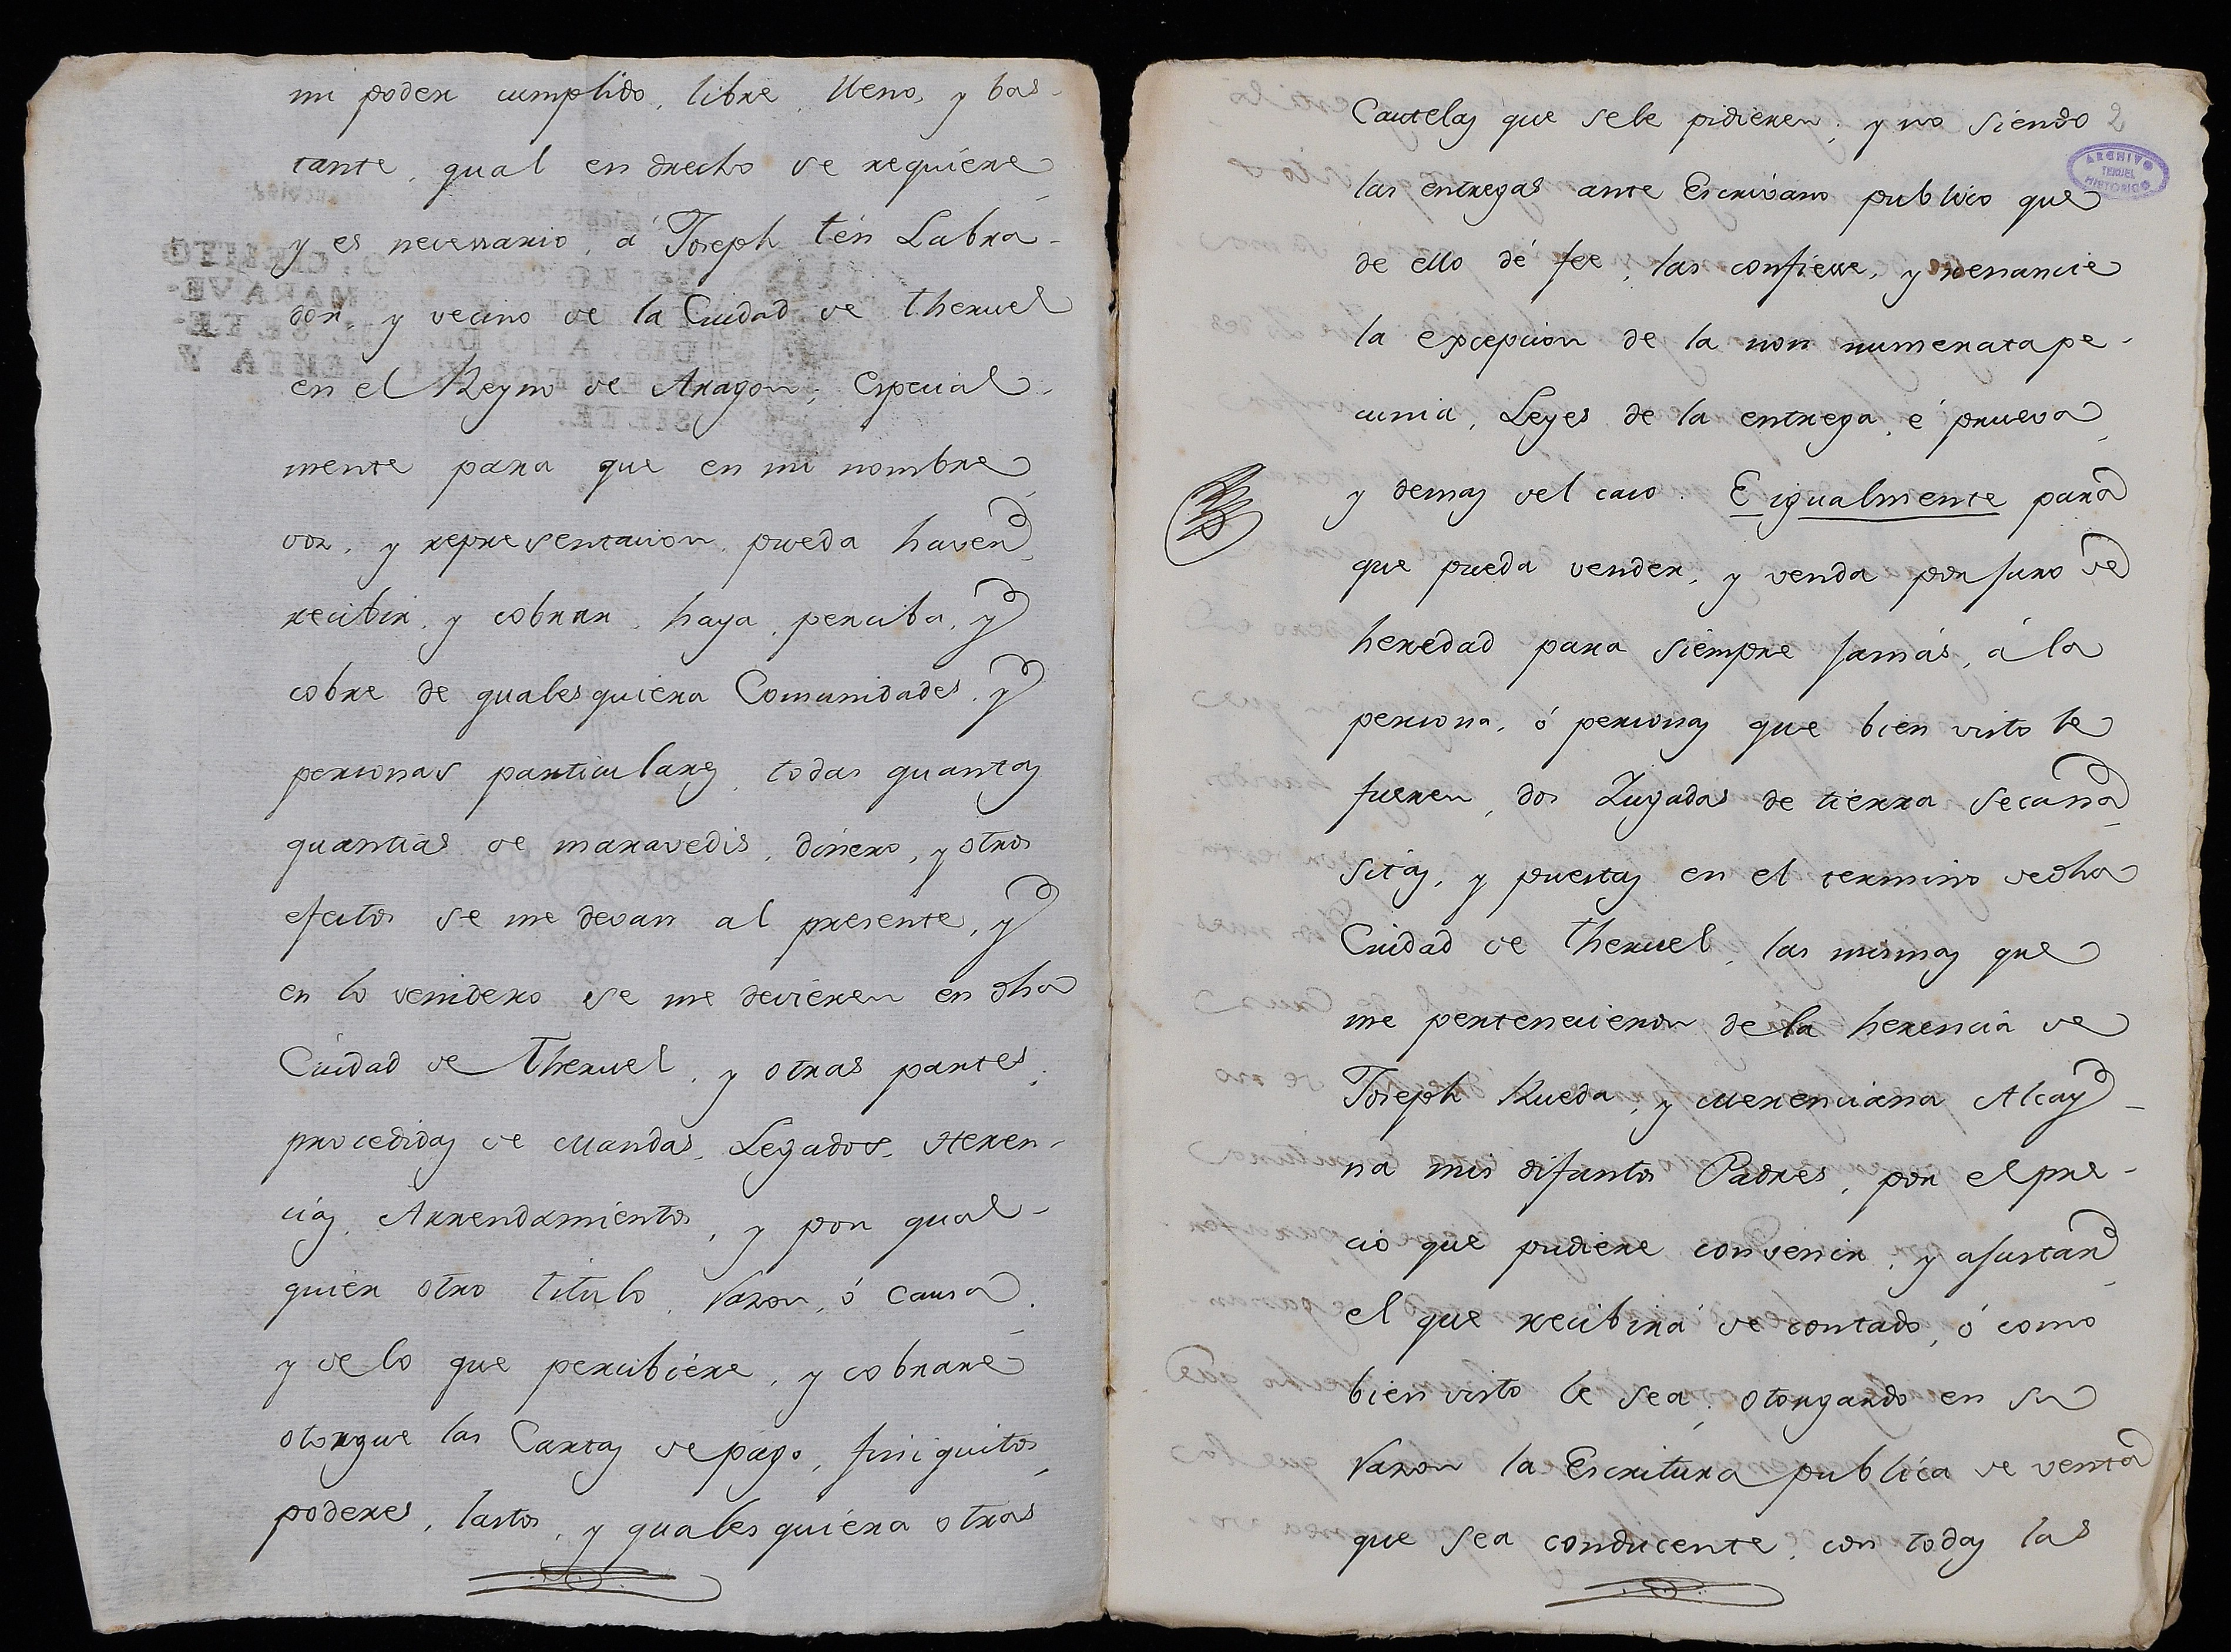 mi poder cumplido, libre, lleno, y bas-
tante, qual en drecho se requiere
y es necessario, á Joseph ten Labra-
dor, y vecino de la Ciudad de Theruel
en el Reyno de Aragon; Especial-
mente para que en mi nombre,
voz, y representacion, pueda haver,
recibir, y cobrar, haya, perciba, y
cobre de qualesquiera Comunidades, y
personas particulares, todas quantas
quantias de maravedis, dinero, y otros
efectos se me devan al presente, y
en lo venidero se me devieren en dha
Ciudad de Theruel, y otras partes,
procedidas de Mandas, Legados, Heren-
cias, Arrendamientos, y por qual-
quier otro titulo, razon, ó causa,
y de lo que percibiere, y cobrare
otorgue las Cartas de pago, finiquitos,
poderes, lastos, y qualesquiera otras
Cautelas que sele pidieren; y no siendo 2
ARCHIVO
TERUEL
HISTORICO
las entregas ante Escrivano publico que
de ello dé fee, las confiesse, y renuncie
la excepcion de la non numerata pe-
cunia, Leyes de la entrega, é prueva,
y demas del caso. E igualmente para
que pueda vender, y venda por juro de
heredad para siempre jamás, á la
persona, ó personas que bien visto le
fueren, dos Yugadas de tierra secana,
sitas, y puestas en el termino dedha
Ciudad de Theruel, las mismas que
me pertenecieron de la herencia de
Joseph Rueda, y Merenciana Alcay-
na mis difuntos Padres, por el pre-
cio que pudiere convenir, y ajustar,
el que recibirá de contado, ó como
bien visto le sea; otorgando en su
razon la Escritura publica de venta
que sea conducente, con todas las